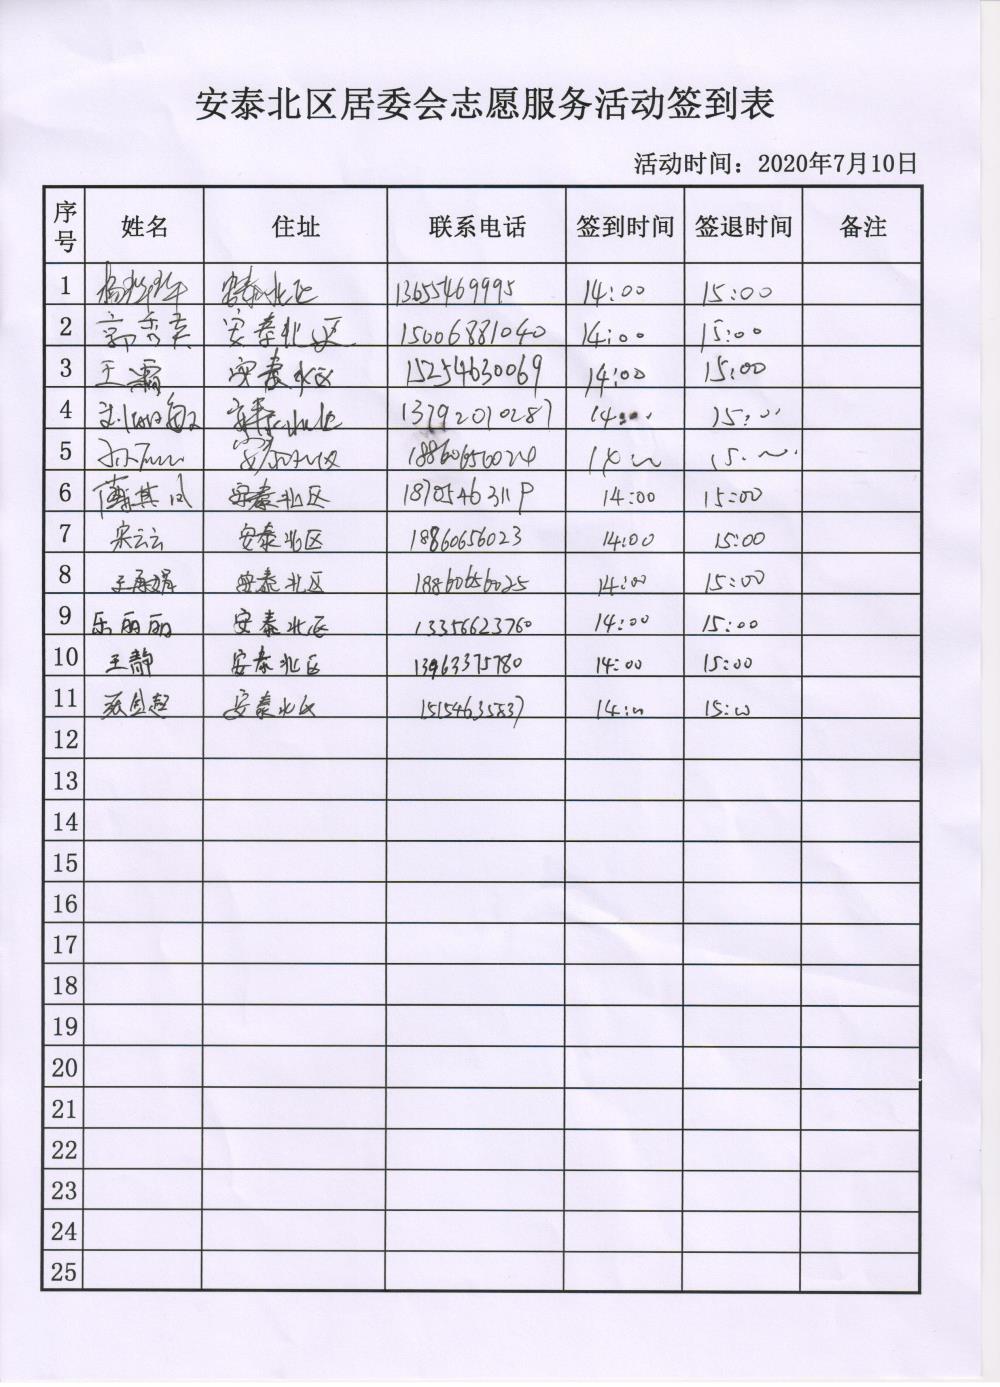 安泰北区居委会志愿服务活动签到表
活动时间：2020年7月10日
序号 姓名 住址 联系电话 签到时间 签退时间 备注
1 安泰北区 13655469995 14:00 15:00
2 郭秀英 安泰北区 15006881040 14:00 15:00
3 王霜 安泰北区 15254630069 14:00 15:00
4 安泰北区 13792070287 14:00 15:00
5 安泰北区 18860656024 14:00 15:00
6 薄其凤 安泰北区 14:00 15:00
7 宋云云 安泰北区 18860656023 14:00 15:00
8 安泰北区 18860656025 14:00 15:00
9 乐丽丽 安泰北区 13356623760 14:00 15:00
10 王静 安泰北区 13963375780 14:00 15:00
11 安泰北区 15154635837 14:00 15:00
12
13
14
15
16
17
18
19
20
21
22
23
24
25